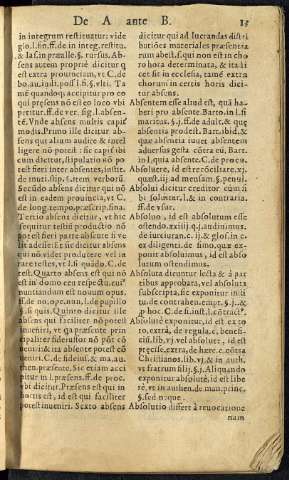 De A ante B. 15
in integrum restituatur: vide
gio.l.fin.ff.de in integ.restitu.
& la.fin pramille.§. rursus. Ab-
sens autem proprie dicitur q
est extra prouinciam, vt C. de
bo.au.iud.
mè quandoq; accipitur pro eo
qui præsens nõ est eo loco vbi
petitur.ff.de ver. sig.l.absen-
tẽ. Vnde absens multis capit
modis. Primo ille dicitur ab-
sens qui alium audire & intel
ligere nõ potest: sic capit sibi
cum dicitur, stipulatio nõ po-
test fieri inter absentes, instit.
de inuti.stip.§.item verborũ.
Secũdo absens dicitur qui nõ
est in eadem prouincia, vt C.
de long.tempo.præscrip.fina.
Tertio absens dicitur, vt hic
sequitur
te est fieri parte absente si ve
lit adesse: & sic dicitur absens
qui nõ videt producere vel in
rare testes, vt l. si quãdo. C. de
test. Quarto absens est qui nõ
est in domo
nuntiandum est nouum opus.
ff.de no.ope.nun.l.de pupillo
§.si quis. Quinto dicitur ille
absens qui faciliter nõ potest
inueniri, vt
cipaliter fideiussor nõ põt cõ
ueniri: & ita absente potest cõ
ueniri. C. de fideiuss. & ma.au.
then.præsente. Sic etiam acci
pitur in l.præsens.ff.de proc.
vbi dicitur. Præsens est qui in
hortis est, id est qui faciliter
potest inueniri. Sexto absens
dicitur qui ad lucrandas distri
butiões materiales præsentia
rum abest.s. qui non est in cho
ro hora determinata, & ita li
cet sit in ecclesia, tamẽ extra
chorum in certis horis dici
tur absens.
Absentem esse aliud est, quã ha
beri pro absente. Barto.in l.si
maritus.§.j.ff.de adult. & quę
absentia prodest. Bart.ibid.&
quæ absentia iuuet absentem
aduersus gesta cõtra eũ, Bart.
in l.quia absente. C. de procu.
Absoluere, id est recõciliare.xj.
quæst.iij ad mensam.§.pensi.
Absolui dicitur creditor cùm si
bi soluitur.l. & in contraria.
ff.de vsur.
Absoluo, id est absolutum esse
ostendo.
de iureiuran.c.ij. & glos.in c.
ex diligenti. de simo. quæ exponit
absoluimus, id est abso-
lutum ostendimus.
Absoluta dicuntur lecta & à par
tibus approbata, vel absoluta
subscripta, sic exponitur in ti.
tu. de contrahen.empt.§.j.&
.p hoc C. de fi.inst.l.cõtract⁹.
Absolutè exponitur, id est ex to
to, extrà, de regula,c.benefi-
cis.lib.vj.vel absolutè, id est
precise.extra, de hære.c.cõtra
Christianos.lib.vj.& in auth.
vt fratrum filij.§.j. Aliquando
exponitur absolutè, id est libe
rè, vt in authen.de man.princ.
§.sed neque.
Absolutio differt à reuocatione
nam